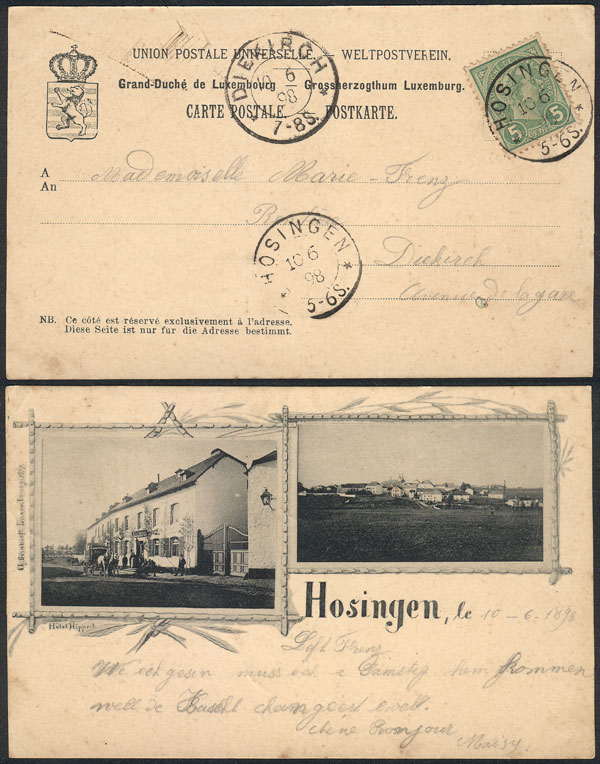 UNION POSTALE UNIVERSELLE. — WELTPOSTVEREIN.
Grand-Duché de Luxembourg Grossherzogthum Luxemburg.
CARTE POSTALE. POSTKARTE.
DIEKIRCH
10 6
98
7-8S.
HOSINGEN
10 6
5-6S.
5 5
A
An
Mademoiselle Marie Frenz
Diekirch
Avenue de la gare
HOSINGEN
10 6
98
5-6S.
NB. Ce côté est réservé exclusivement à l'adresse.
Diese Seite ist nur fur die Adresse bestimmt.
Hotel Hippert
Hosingen, le 10 - 6. 1898
Frenz
We ech gesin muss ech e Samsteg hem kommen
well de
Bonjour
Maisy.